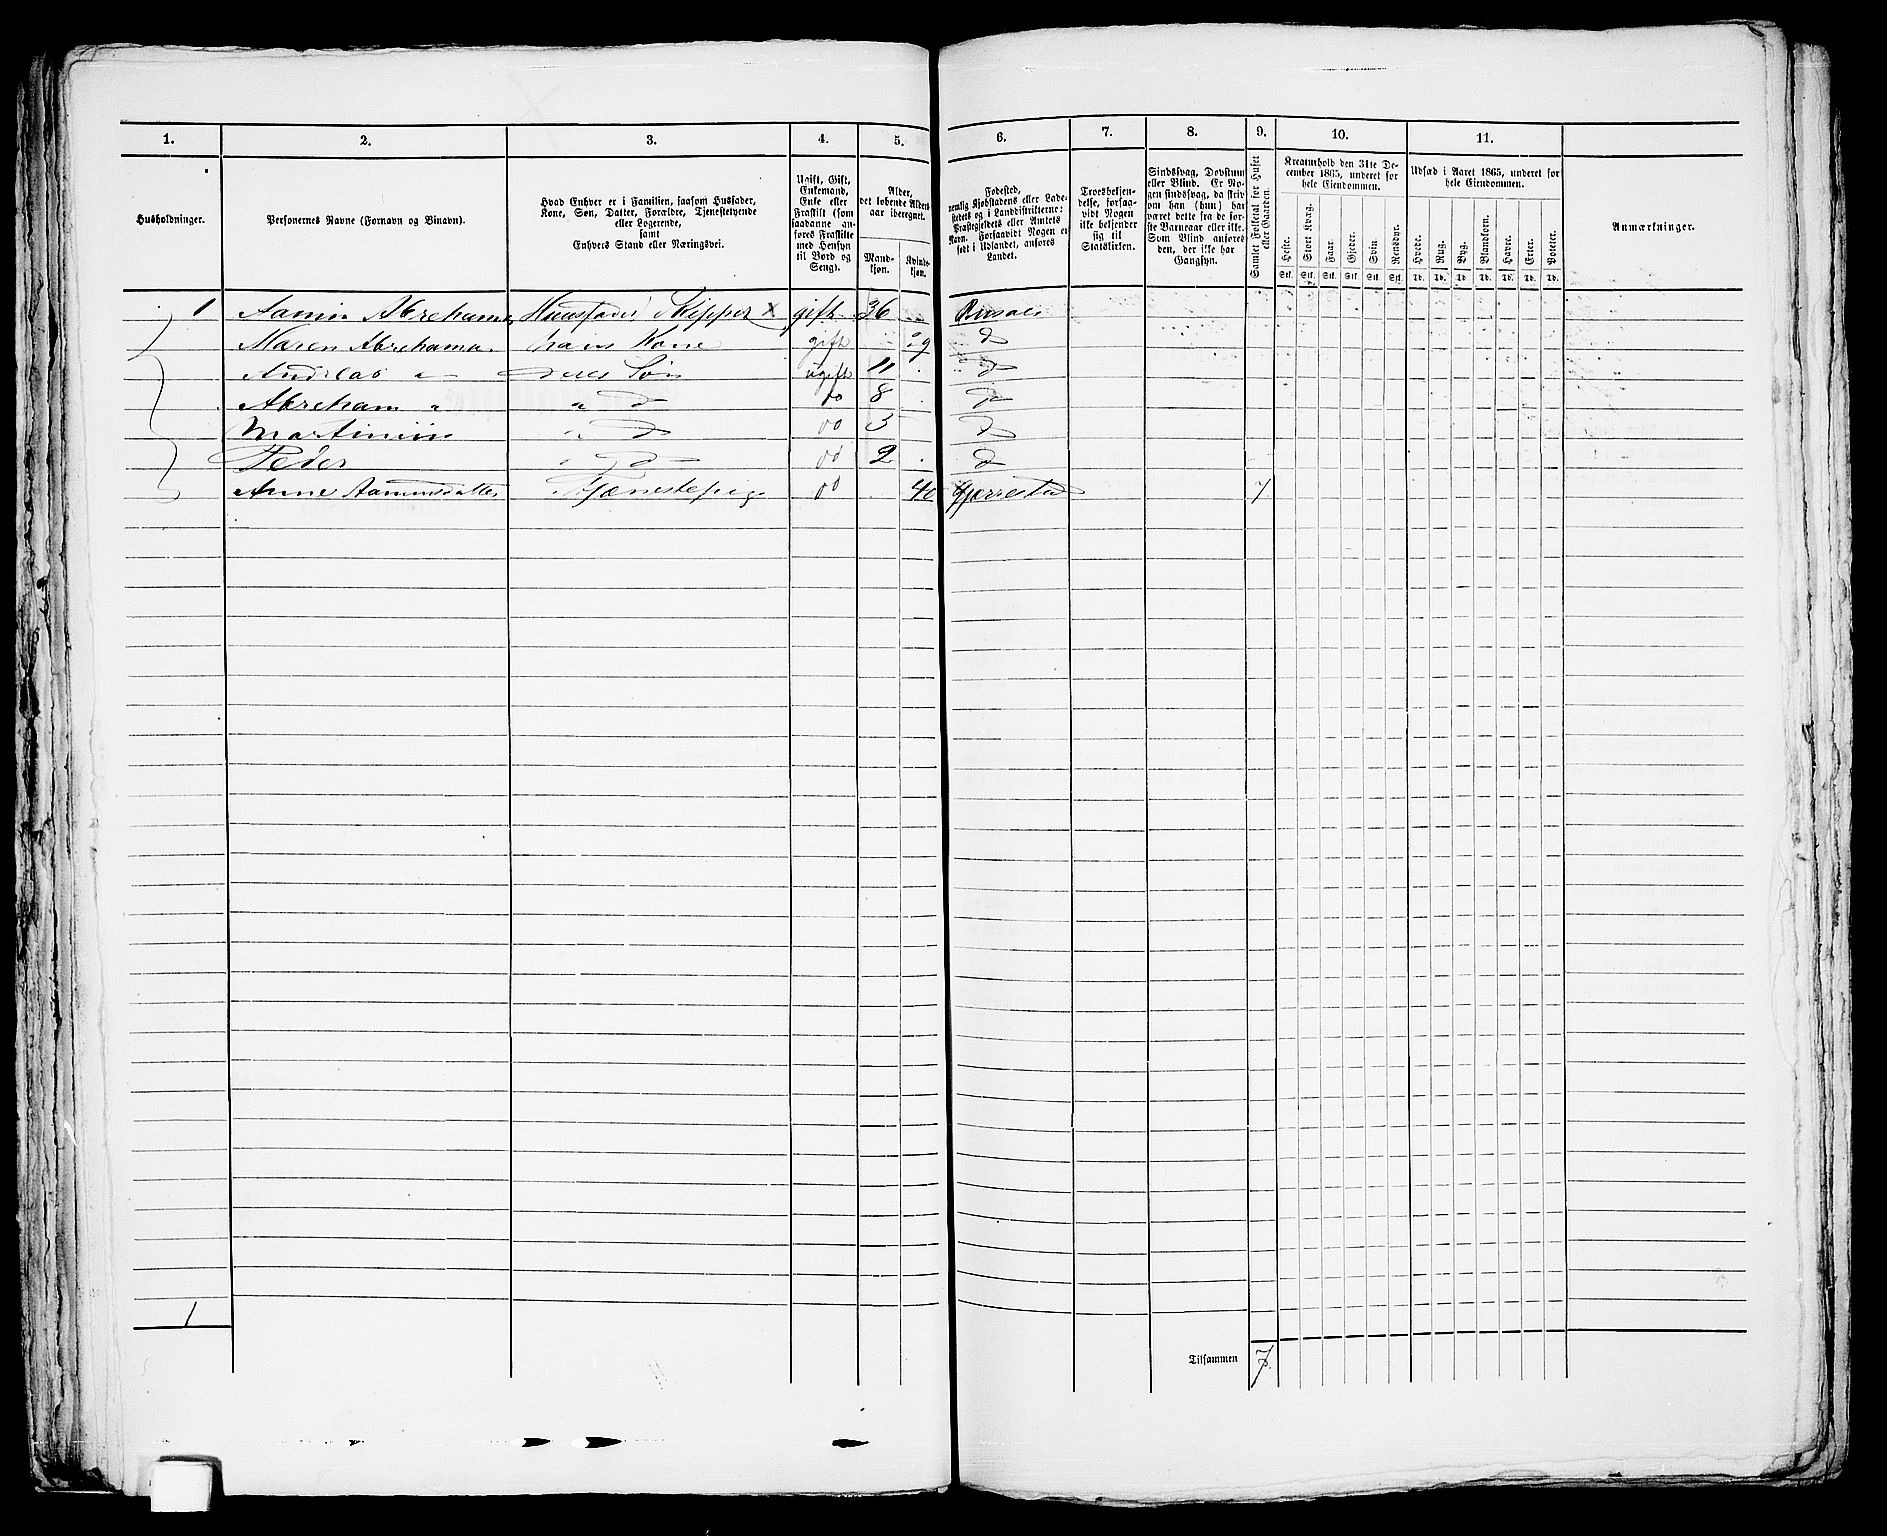 1. 2. 3. 4. 5. 6. 7. 8. 9. 10. 11.
Husholdninger.
Personernes Navne (Fornavn og Binavn).
Hvad Enhver er i Familien, saasom Husfader,
Kone, Søn, Datter, Forældre, Tjenestetyende
eller Logerende,
samt
Enhvers Stand eller Næringsvei.
Ugift, Gift,
Enkemand,
Enke eller
Fraskilt (som
saadanne an-
føres Fraskilte
med Hensyn
til Bord og
Seng).
Alder,
det løbende Alders-
aar iberegnet.
Mand-
kjøn.
Kvinde-
kjøn.
Fødested,
nemlig Kjøbstadens eller Lade-
stedets og i Landdistrikterne:
Præstegjeldets eller Amtets
Navn. Forsaavidt Nogen er
født i Udlandet, anføres
Landet.
Troesbekjen-
delse, forsaa-
vidt Nogen
ikke bekjender
sig til
Statskirken.
Sindssvag, Døvstum
eller Blind. Er No-
gen sindssvag, da skriv
om han (hun) har
været dette fra de før-
ste Barneaar eller ikke.
Som Blind anføres
den, der ikke har
Gangsyn.
Samlet Folketal for Huset
eller Gaarden.
Kreaturhold den 31te De-
cember 1865, underet for
hele Eiendommen.
Heste.
Stort Kvæg.
Faar.
Gjeder.
Svin.
Rensdyr.
Stk. Stk. Stk. Stk. Stk. Stk.
Udsæd i Aaret 1865, underet for
hele Eiendommen.
Hvede.
Rug.
Byg.
Blandkorn.
Havre.
Erter.
Poteter.
Td. Td. Td. Td. Td. Td. Td.
Anmærkninger.
1 Abrehams Huusfader Skipper x gift 36
Maren Abrehams hans Kone gift d
Andreas " Søn ugift 11 d
Abreham " " d do 8 d
" d do 3 d
Peder " d do 2 d
Anne Tjænestepige do 40 Gjerrestad 7
1
Tilsammen 7